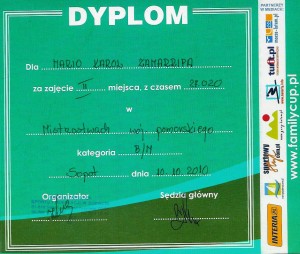 DYPLOM
Dla MARIO KAROL ZAMARRIPA
za zajęcie I miejsca, z czasem 28.020
w
Mistrzostwach woj. pomorskiego
kategoria B/M
Sopot dnia 10.10.2010
Organizator
Sędzia główny
PARTNERZY
W MEDIACH:
turit.pl
sportowy
INTERIA.PL
www.familycup.pl